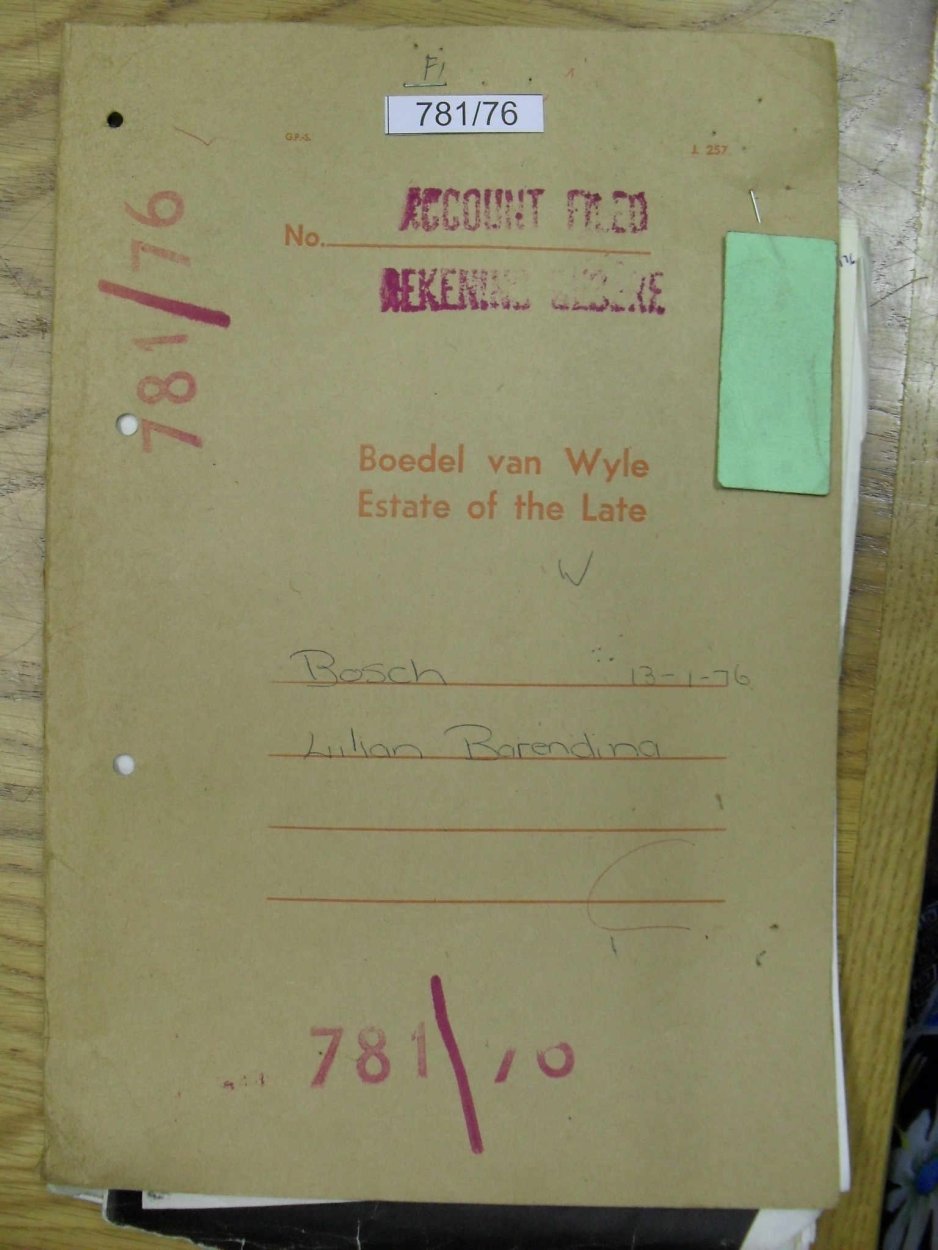 F1
781/76
G.P.-S.
J. 257
781/76
No.
ACCOUNT FILED
REKENING
Boedel van Wyle
Estate of the Late
W
Bosch 13-1-76
Lilian Barendina
781/76